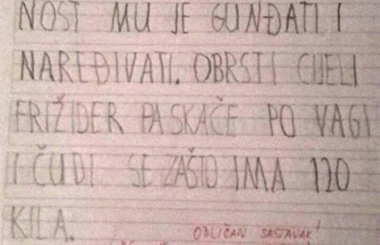 NOST MU JE GUNĐATI I
NAREĐIVATI. OBRSTI CIJELI
FRIŽIDER PA SKAČE PO VAGI
I ČUDI SE ZAŠTO IMA 120
KILA.
ODLIČAN SASTAVAK!